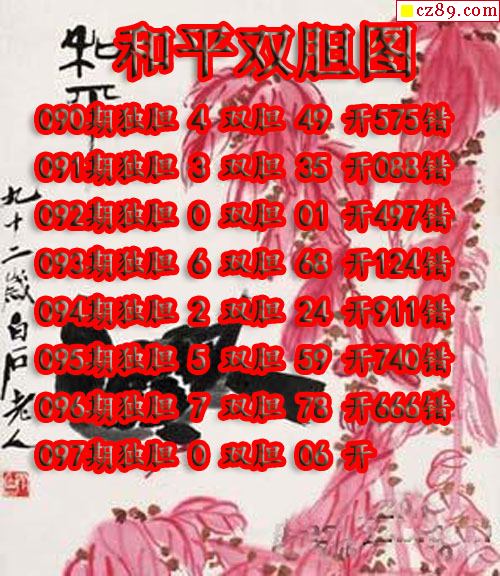 cz89.com
和平双胆图
和平
090期独胆 4 双胆 49 开575错
091期独胆 3 双胆 35 开088错
092期独胆 0 双胆 01 开497错
093期独胆 6 双胆 68 开124错
094期独胆 2 双胆 24 开911错
095期独胆 5 双胆 59 开740错
096期独胆 7 双胆 78 开666错
097期独胆 0 双胆 06 开
九十二岁白石老人